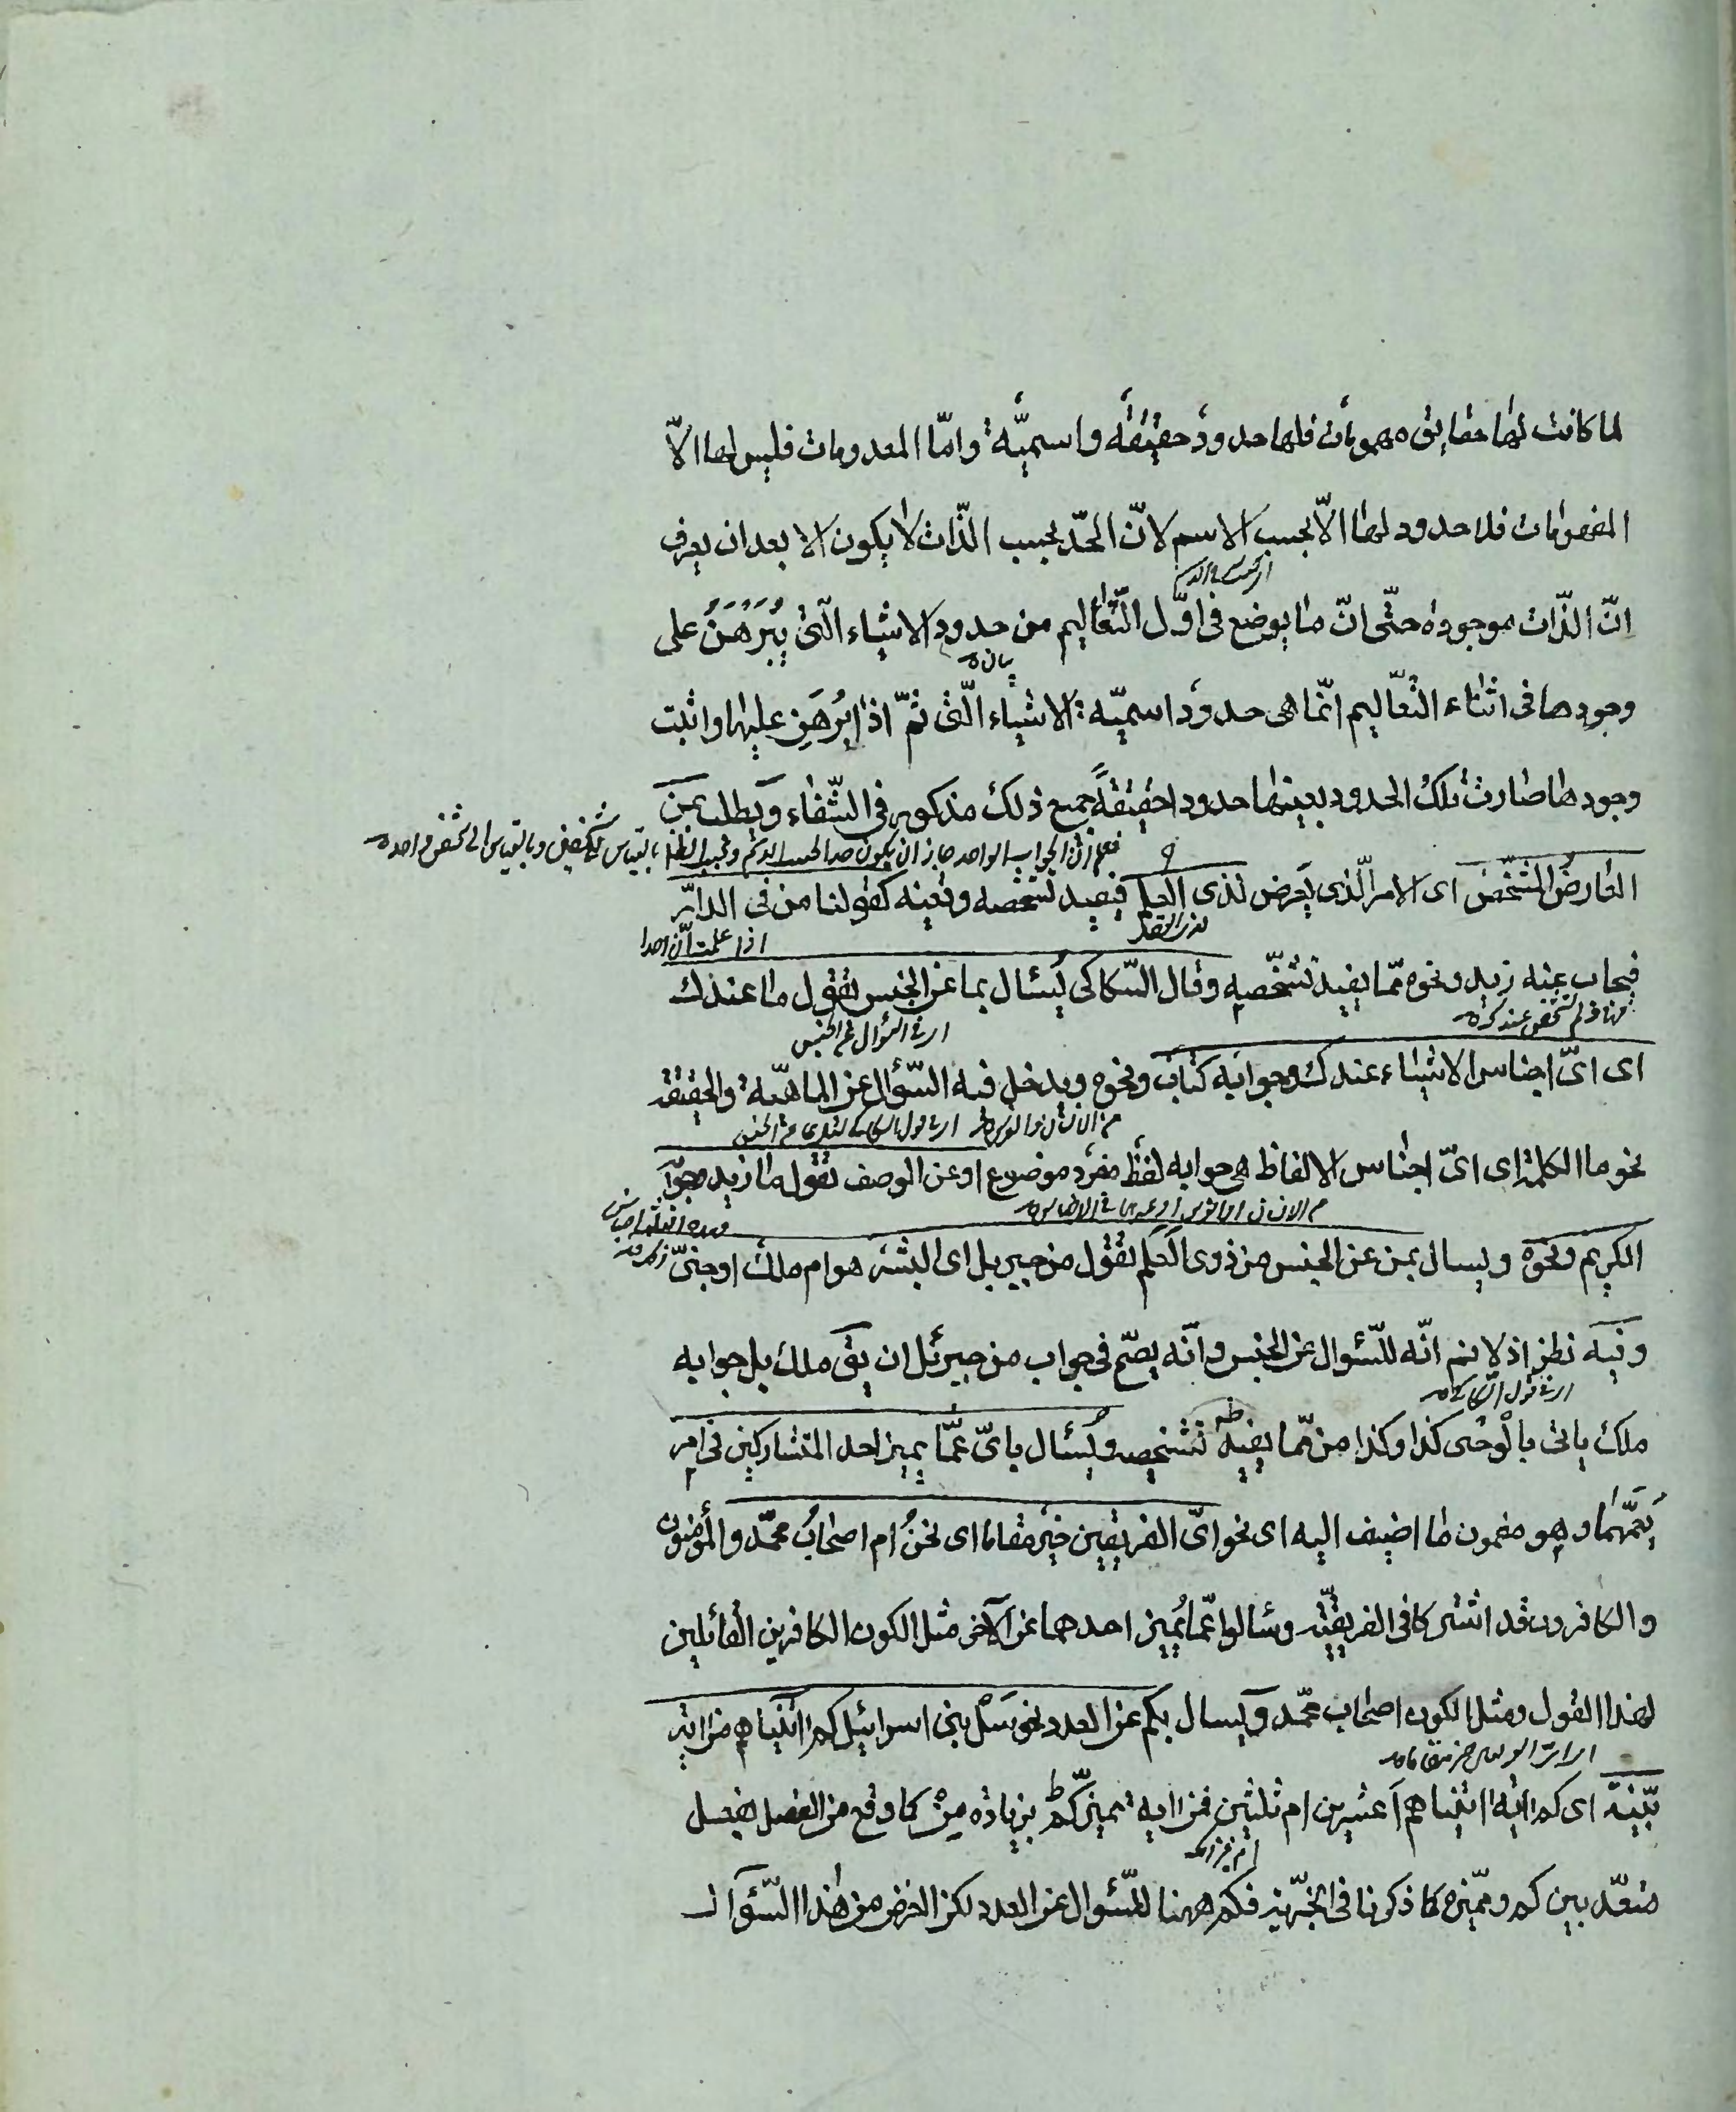 لما كانت لها حقايق مفهومات فلها حدود حقيقة واسمية وامّا المعدومات فليس لها الاّ
المفهومات فلا حدود لها الاّ بحسب الاسم لانّ الحدّ بحسب الذّات لا يكون الا بعد ان يعرف
انّ الذّات موجودة حتّى انّ ما يوضع فى اوّل التّعاليم من حدود الاشياء الّتى يُبَرهَنُ على
وجودها فى اثناء التّعاليم انّما هى حدود اسميّة الاشياء الّتى ثمّ اذا بُرهَن عليها واثبت
وجودها صارت تلك الحدود بعينها حدودا حقيقةً جميع ذلك مذكور فى الشّفاء ويطلب بمن
فعلم ان الجواب الواحد جاز ان يكون حدا بحسب الاسم وبحسب الذات بالقياس الى شخصين وبالقياس الى شخص واحد
العارضُ المشخّص اى الامر الّذى يَعرض لذى العلم فيفيد تشخّصه وتعينه كقولنا من فى الدار
اذا علمت ان احدا
فيجاب عنه زيد ونحوه ممّا يفيد تشخّصه وقال السّكاكى يُسئال بما عن الجنس تقول ما عندك
اى فى السؤال عن الجنس
اى اىّ اجناس الاشياء عندك وجوابه كتاب ونحوه ويدخل فيه السّؤال عن الماهيّة والحقيقة
نحو ما الكلمة اى اىّ اجناس الالفاظ هى جوابه لفظ مفرد موضوع او عن الوصف تقول ما زيد وجوابه
الكريم ونحوه ويسال بمن عن الجنس من ذوى العلم تقول من جبريل اى ابشر هو ام ملك او جنىّ
وفيه نظر اذ لا نم انّه للسّئوال عن الجنس وانّه يصحّ فى جواب من جبرئل ان يقى ملك بل جوابه
اى فى قول السكاكى
ملك ياتى بالوحى كذا وكذا من ممّا يفيد تشخيصه ويُسئال باىّ عمّا يميز احد المتشاركين فى امر
يَعمّهما وهو مضمون ما اضيف اليه اى نحو اىّ الفريقين خير مقاما اى نحنُ ام اصحابُ محمّد والمؤمنون
والكافرون قد اشتركا فى الفريقيّة وسئالوا عمّا يُميز احدهما عن الآخر مثل الكون الكافرين القائلين
لهذا القول ومثل الكون اصحاب محمّد ويسال بكم عن العدد نحو سَلْ بنى اسرائيل كم اتيناهم من اية
بيّنة اى كم اية اتيناهم اَعشرين ام ثلثين فمن اية مميز كم بزيادة مِنْ كما وقع من الفصل بفعل
متعدّ بين كم ومميّزه كما ذكرنا فى الخبريّة فكم ههنا للسّئوال عن العدد لكن الغرض من هذا السّؤال